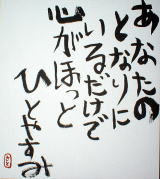 あなたの
となりに
いるだけで
心がほっと
ひとやすみ